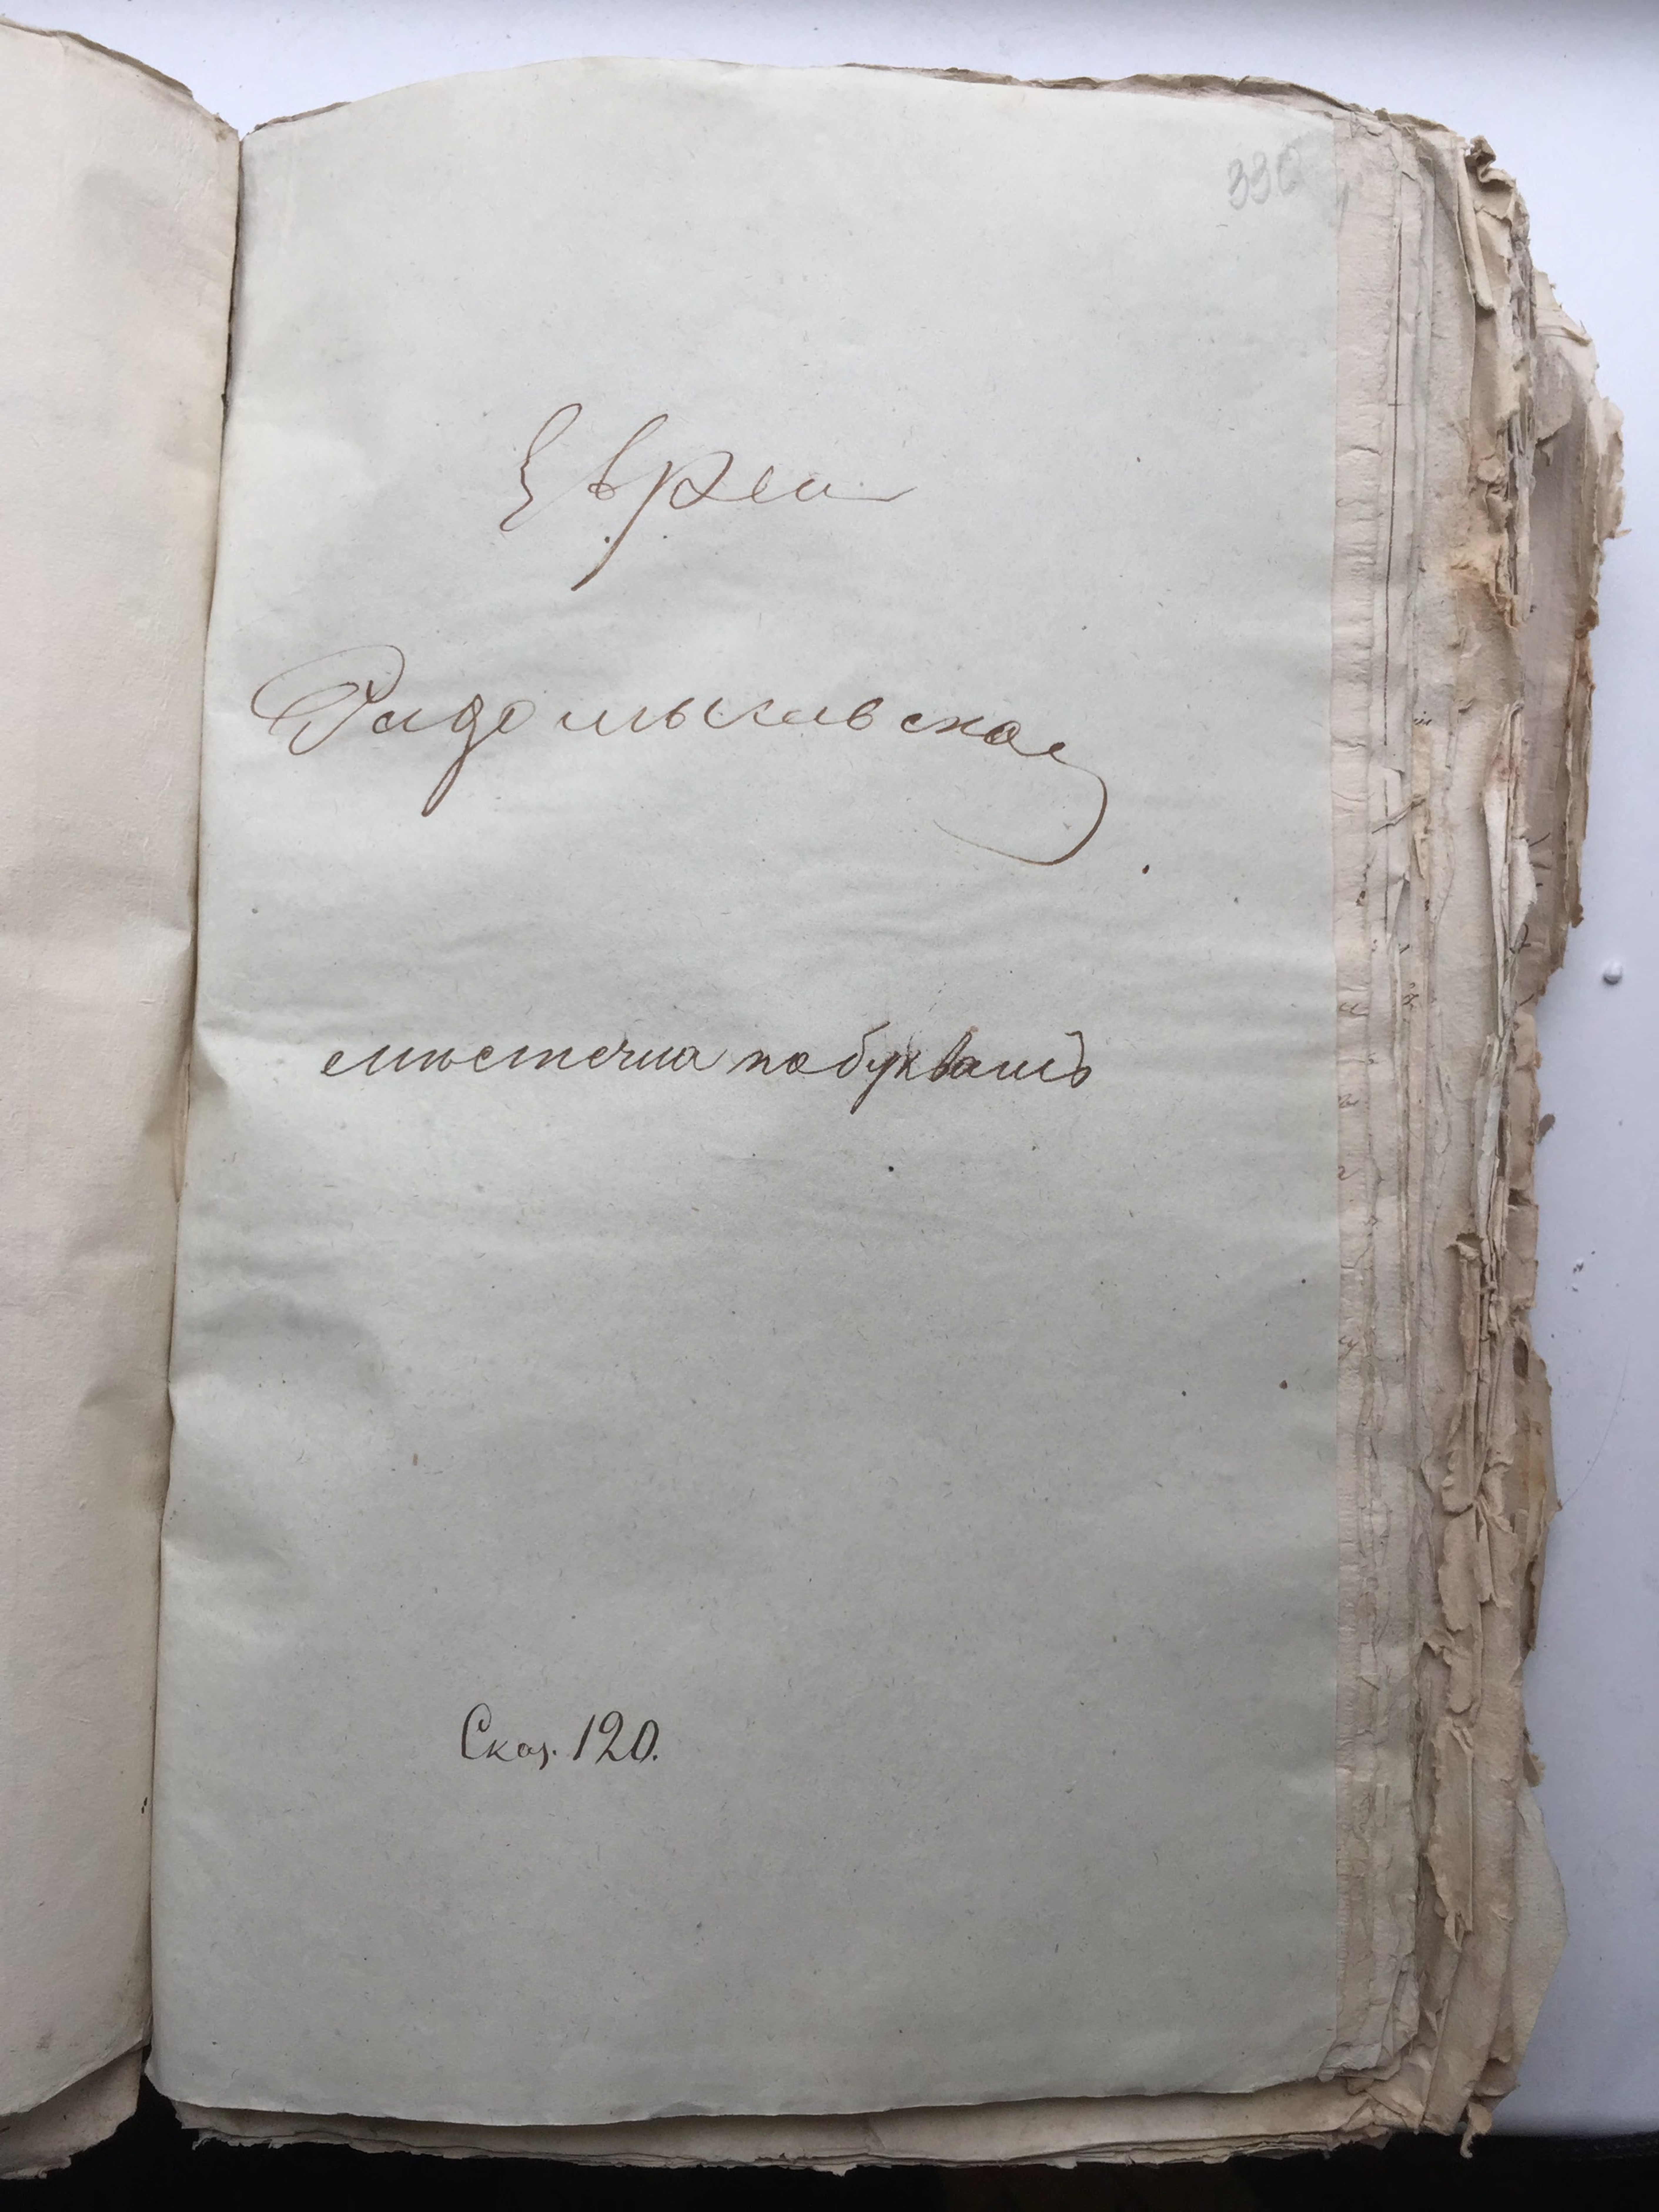 330
Евреи
Радомысльское
местечка по буквамъ
Сказ. 120.